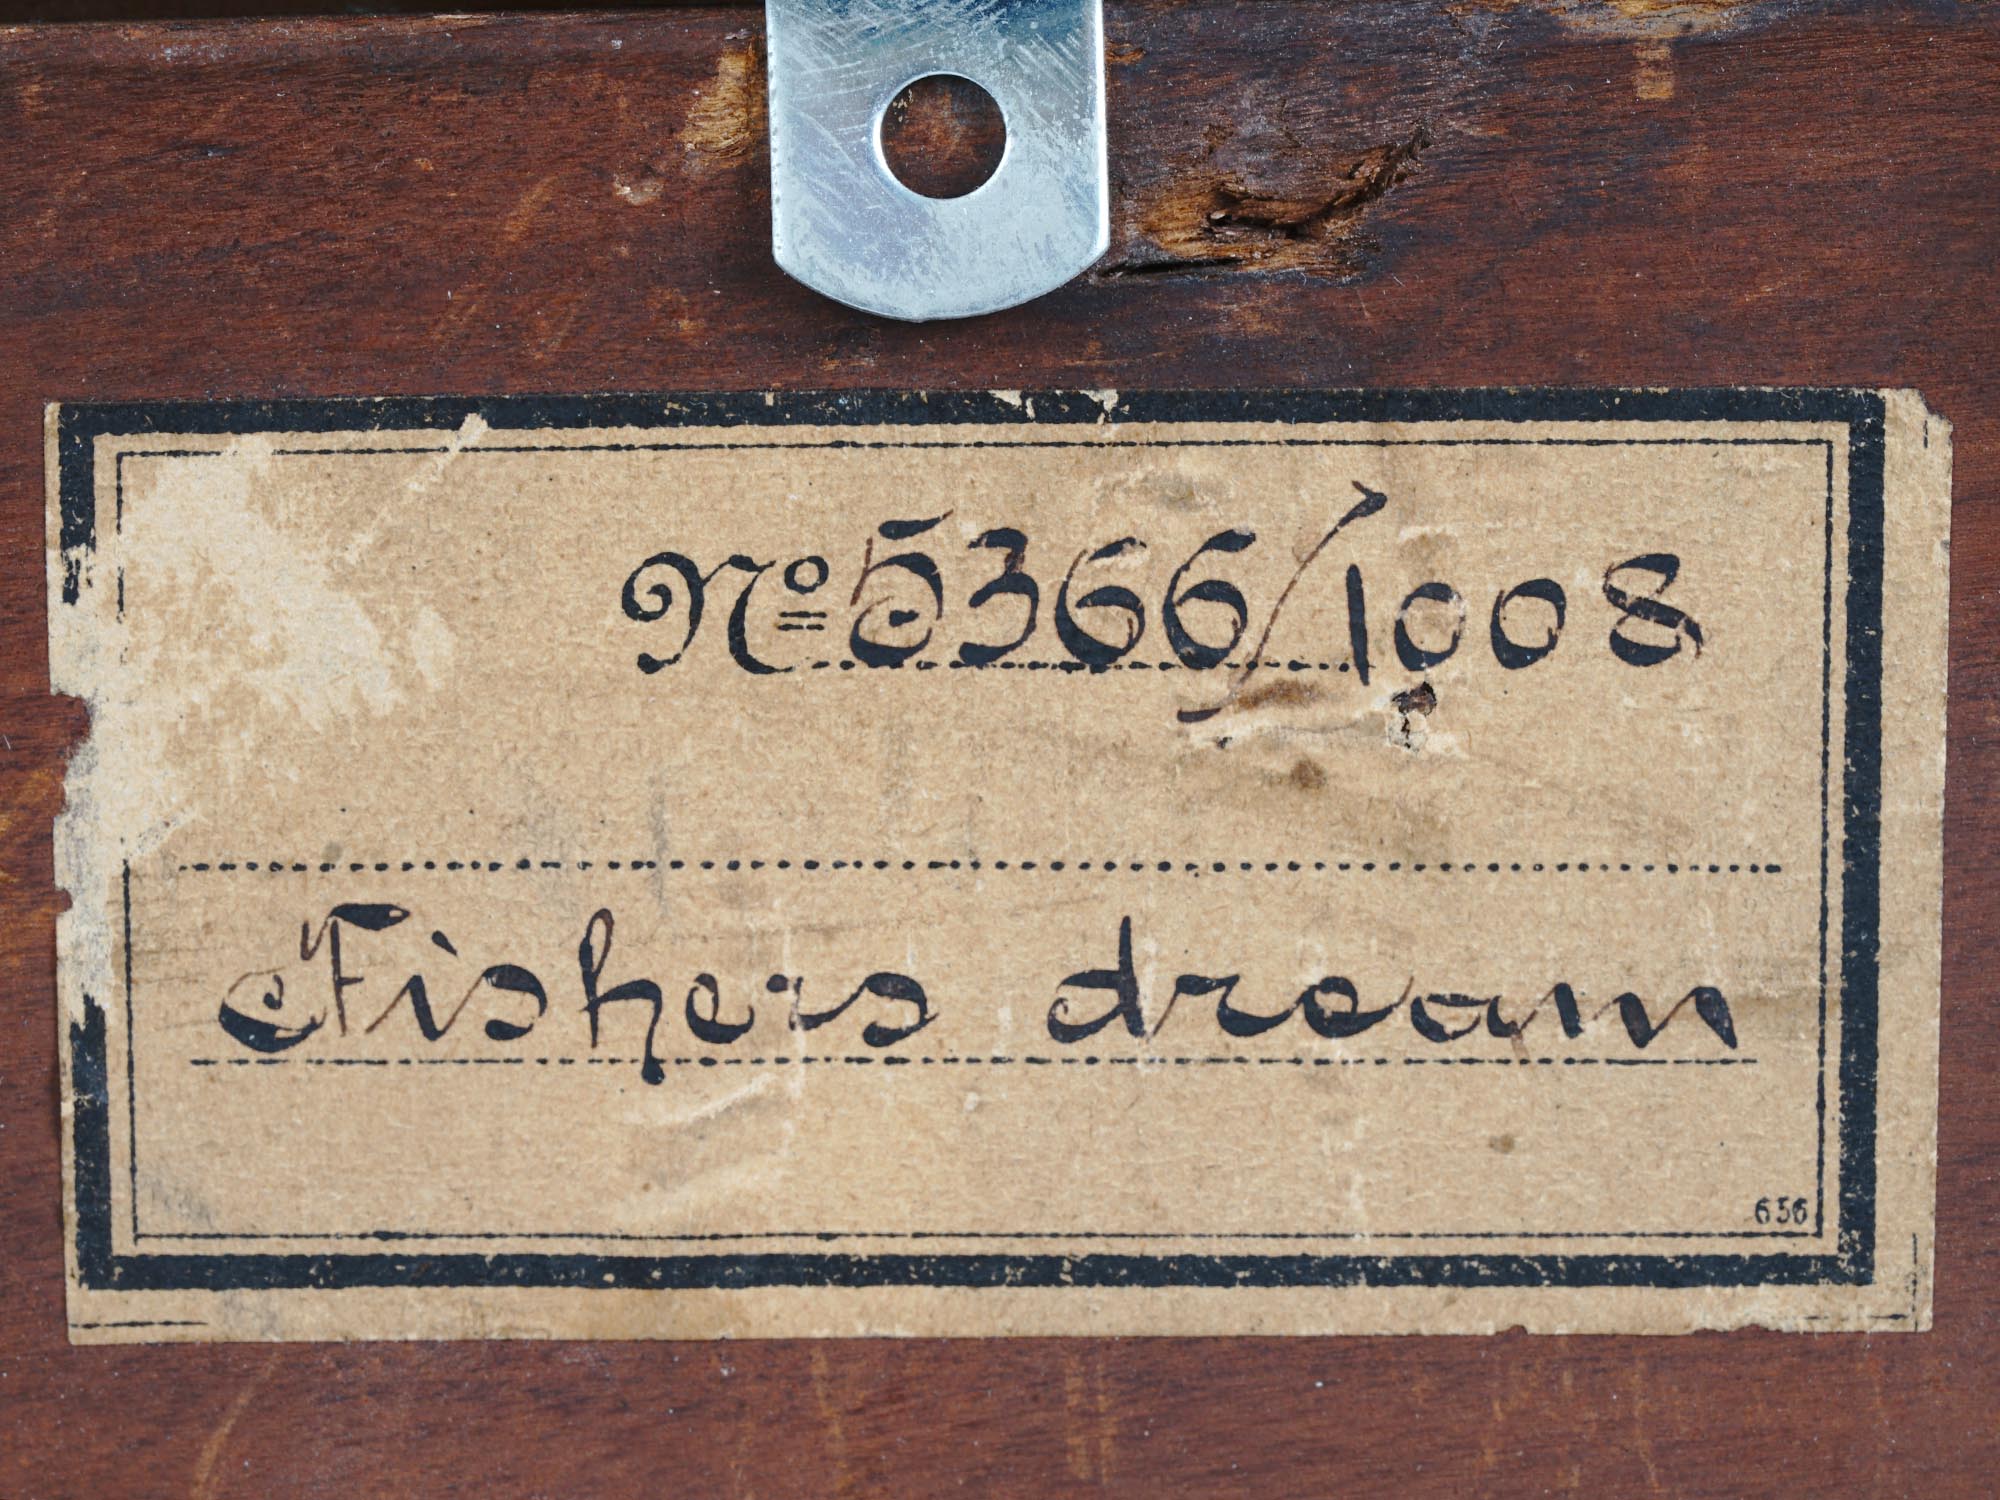 № 5366/1008
Fishers dream
656